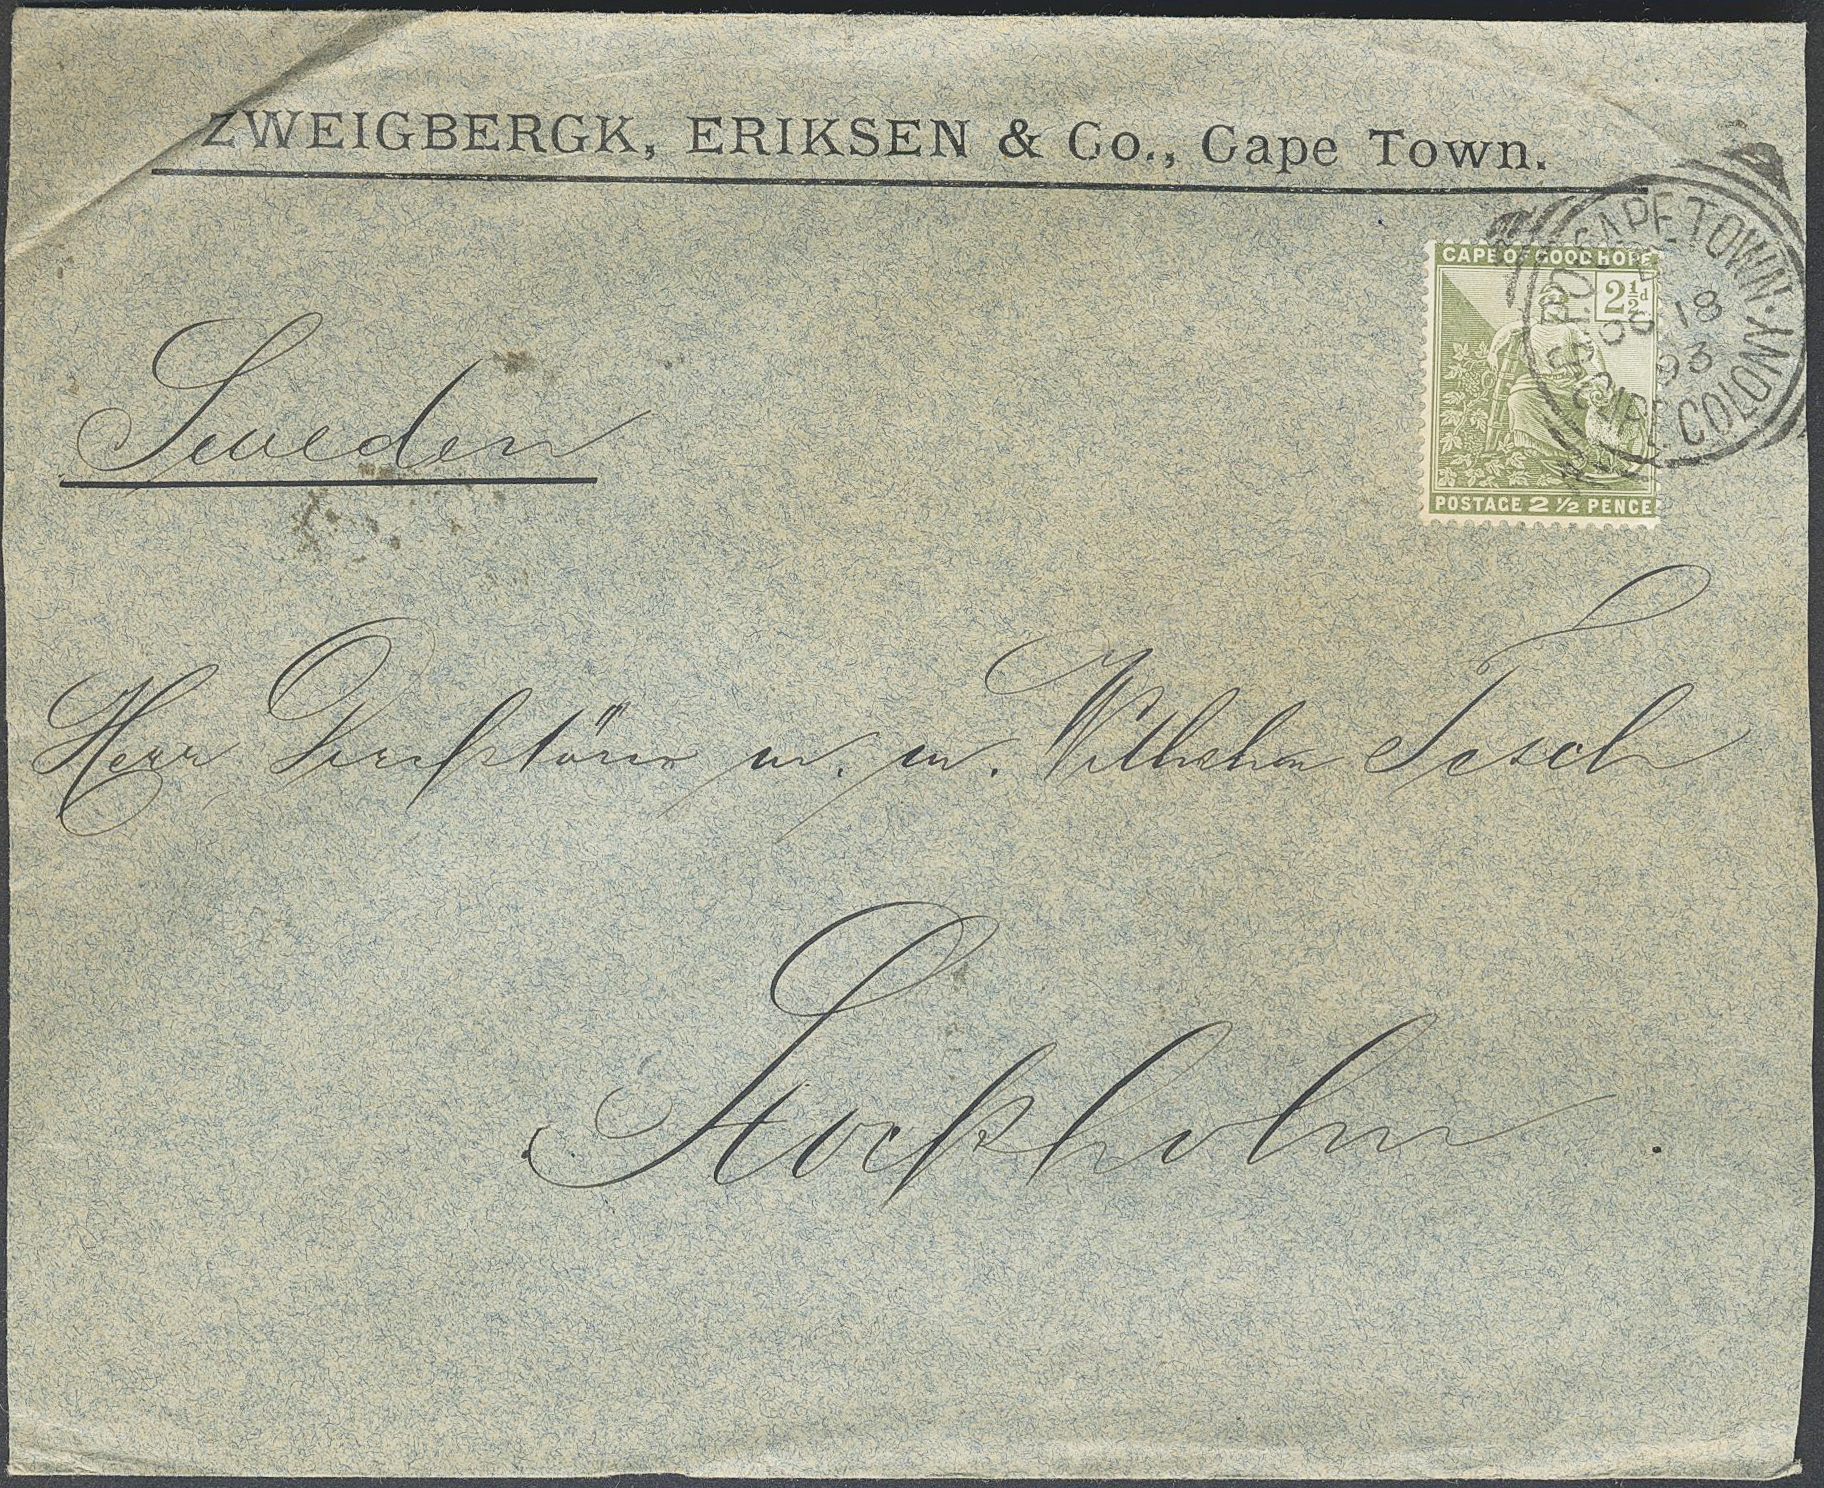 ZWEIGBERGK, ERIKSEN & Co., Cape Town.
G.P.O. CAPE TOWN · CAPE COLONY
OC 18
93
CAPE OF GOOD HOPE
2½d
POSTAGE 2 ½ PENCE
Sweden
Herr Direktören m. m. Wilhelm Tesch
Stockholm.